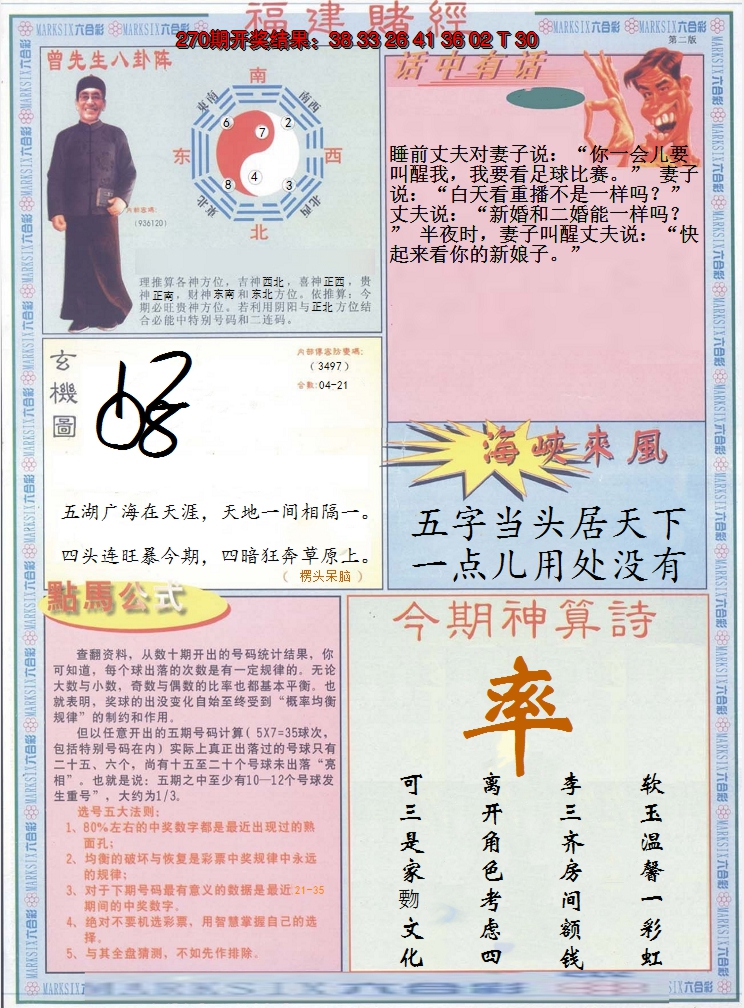 福建賭經
270期开奖结果：38 33 26 41 36 02 T 30
第二版
曾先生八卦阵
南
东南
南西
6
7
2
东
西
8
4
3
东北
北西
北
内部密碼：
（936120）
理推算各神方位，吉神西北，喜神正西，贵
神正南，财神东南和东北方位。依推算：今
期必旺贵神方位。若利用阴阳与正北方位结
合必能中特别号码和二连码。
话中有话
睡前丈夫对妻子说：“你一会儿要
叫醒我，我要看足球比赛。” 妻子
说：“白天看重播不是一样吗？”
丈夫说：“新婚和二婚能一样吗？
” 半夜时，妻子叫醒丈夫说：“快
起来看你的新娘子。”
玄機圖
内部傳密防寬碼：
（3497）
合数：04-21
五湖广海在天涯，天地一间相隔一。
四头连旺暴今期，四暗狂奔草原上。
（ 楞头呆脑 ）
海峽來風
五字当头居天下
一点儿用处没有
點馬公式
查翻资料，从数十期开出的号码统计结果，你
可知道，每个球出落的次数是有一定规律的。无论
大数与小数，奇数与偶数的比率也都基本平衡。也
就表明，奖球的出没变化自始至终受到“概率均衡
规律”的制约和作用。
但以任意开出的五期号码计算（5X7=35球次，
包括特别号码在内）实际上真正出落过的号球只有
二十五、六个，尚有十五至二十个号球未出落“亮
相”。也就是说：五期之中至少有10—12个号球发
生重号”，大约为1/3。
选号五大法则：
1、80%左右的中奖数字都是最近出现过的熟
面孔；
2、均衡的破坏与恢复是彩票中奖规律中永远
的规律；
3、对于下期号码最有意义的数据是最近21-35
期间的中奖数字。
4、绝对不要机选彩票，用智慧掌握自己的选
择。
5、与其全盘猜测，不如先作排除。
今期神算詩
率
软玉温馨一彩虹
李三齐房间额钱
离开角色考虑四
可三是家覅文化
MARKSIX六合彩